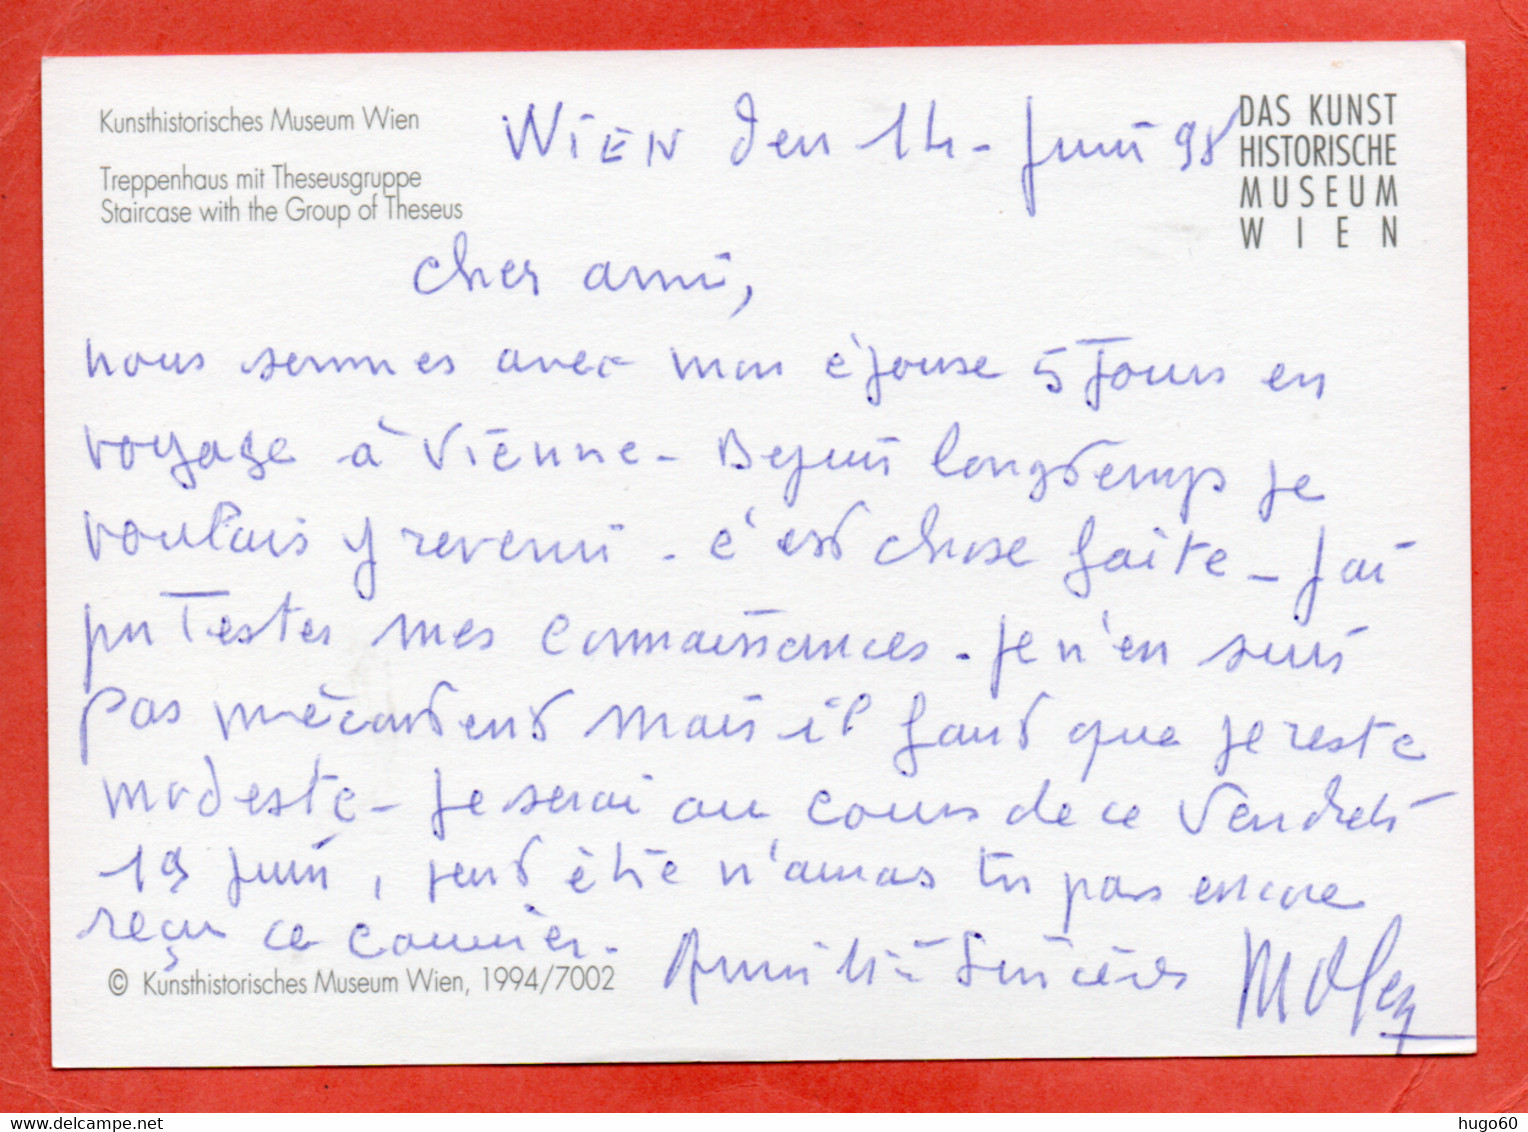 Kunsthistorisches Museum Wien
Treppenhaus mit Theseusgruppe
Staircase with the Group of Theseus
WIEN den 14 - Juni 98
DAS KUNST
HISTORISCHE
MUSEUM
WIEN
cher ami,
nous sommes avec mon épouse 5 Jours en
voyage à Vienne - Depuis longtemps je
voulais y revenir - c'est chose faite - j'ai
pu Tester mes connaissances - je n'en suis
pas mécontent mais il faut que je reste
modeste - je serai au cours de ce Vendredi
19 juin, peut être n'auras tu pas encore
reçu ce courrier - Amitié Sincères
© Kunsthistorisches Museum Wien, 1994/7002
hugo60